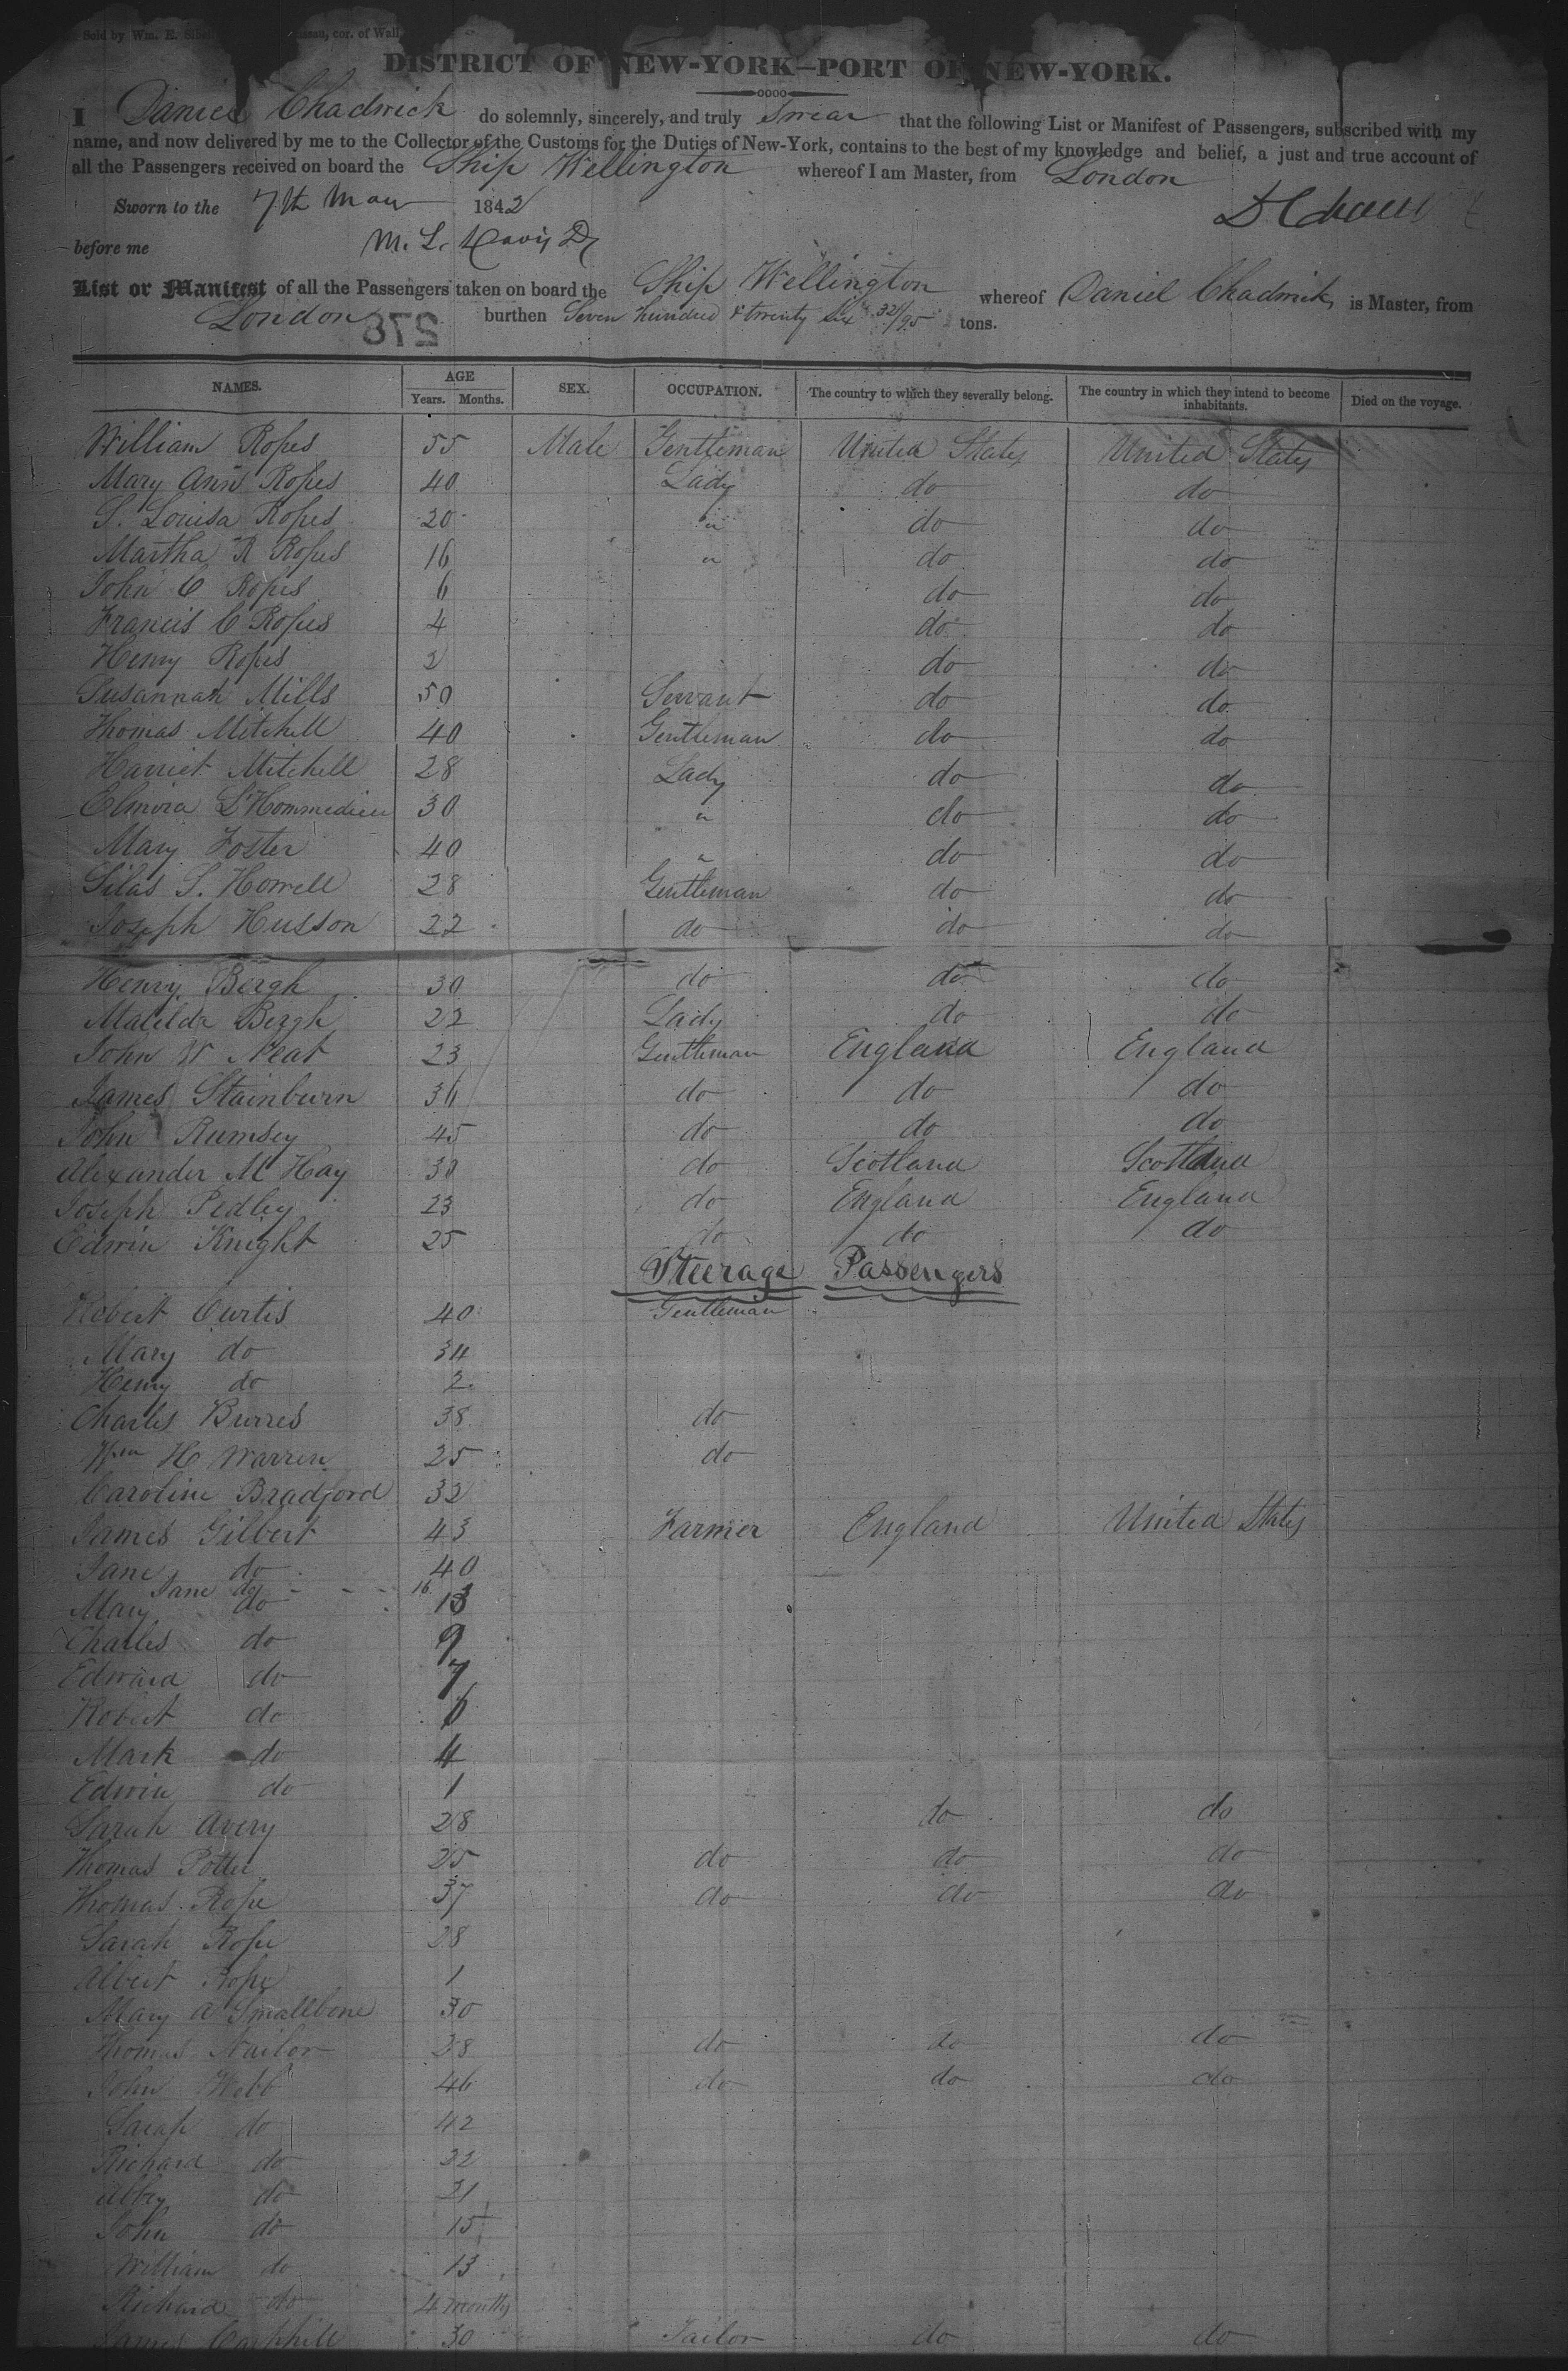 Sold by Wm. E. cor. of Wall
DISTRICT OF NEW-YORK—PORT OF NEW-YORK.
I Daniel Chadwick do solemnly, sincerely, and truly Swear that the following List or Manifest of Passengers, subscribed with my
name, and now delivered by me to the Collector of the Customs for the Duties of New-York, contains to the best of my knowledge and belief, a just and true account of
all the Passengers received on board the Ship Wellington whereof I am Master, from London
Sworn to the 7th May 1842
before me M. L. Davis
List or Manifest of all the Passengers taken on board the Ship Wellington whereof Daniel Chadwick is Master, from
London burthen Seven hundred & twenty six 32/95 tons.
278
NAMES. AGE SEX. OCCUPATION. The country to which they severally belong. The country in which they intend to become inhabitants. Died on the voyage.
Years. Months.
William Ropes 55 Male Gentleman United States United States
Mary Ann Ropes 40 Lady do do
S. Louisa Ropes 20 " do do
Martha R Ropes 16 " do do
John C Ropes 6 do do
Francis C Ropes 4 do do
Henry Ropes 2 do do
Susannah Mills 50 Servant do do
Thomas Mitchell 40 Gentleman do do
Harriet Mitchell 28 Lady do do
Elmira L'Hommedieu 30 " do do
Mary Foster 40 " do do
Silas S. Howell 28 Gentleman do do
Joseph Husson 22 do do do
Henry Bergh 30 do do do
Matilda Bergh 22 Lady do do
John W Neat 23 Gentleman England England
James Stainburn 36 do do do
John Rumsey 45 do do do
Alexander M Hay 30 do Scotland Scotland
Joseph Pedley 23 do England England
Edwin Knight 25 do do do
Steerage Passengers
Robert Curtis 40 Gentleman
Mary do 34
Henry do 2
Charles Burres 38 do
Wm H Warren 25 do
Caroline Bradford 32
James Gilbert 43 Farmer England United States
Jane do 40
Jane do 16
Mary do 13
Charles do 9
Edward do 7
Robert do 6
Mark do 4
Edwin do 1
Sarah Avery 28 do do
Thomas Potter 25 do do do
Thomas Rope 37 do do do
Sarah Rope 28
Albert Rope 1
Mary A Smallbone 30
Thomas Nailor 28 do do do
John Webb 46 do do do
Sarah do 42
Richard do 22
Abby do 21
John do 15
William do 13
Richard do 4 months
James 30 Tailor do do